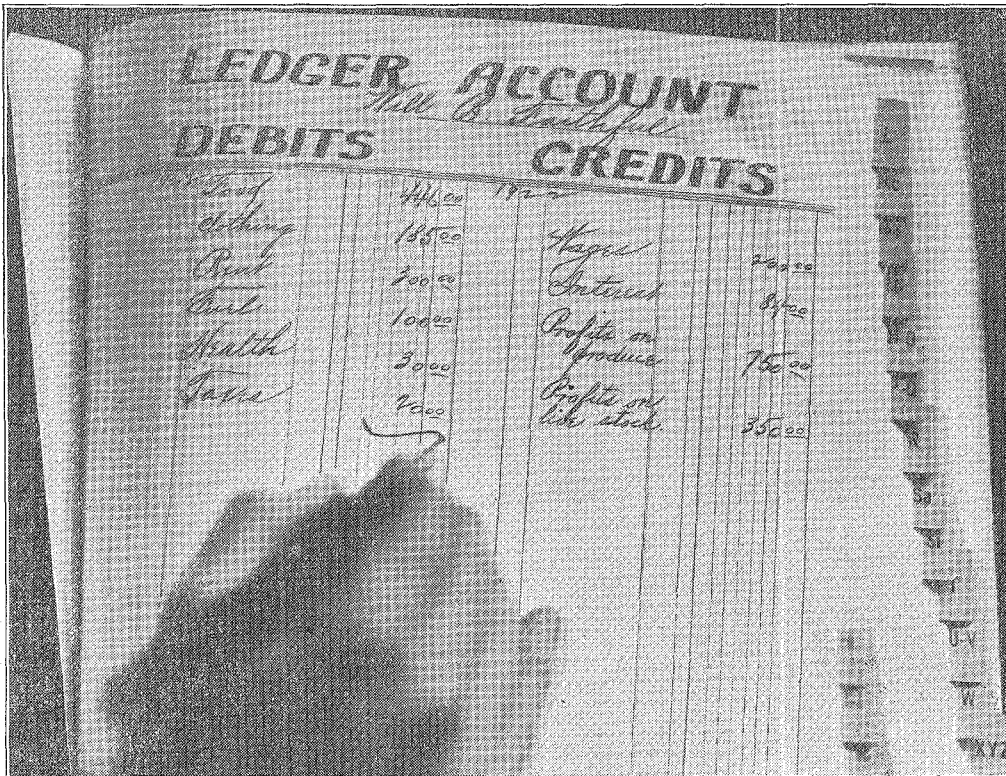 LEDGER ACCOUNT
Will B Faithful
DEBITS CREDITS
Food 446.00
Clothing 185.00
Rent 300.00
Fuel 100.00
Health 30.00
Taxes 20.00
1922
Wages
Interest
Profits on
produce 750.00
Profits on
live stock 350.00
W
XYZ